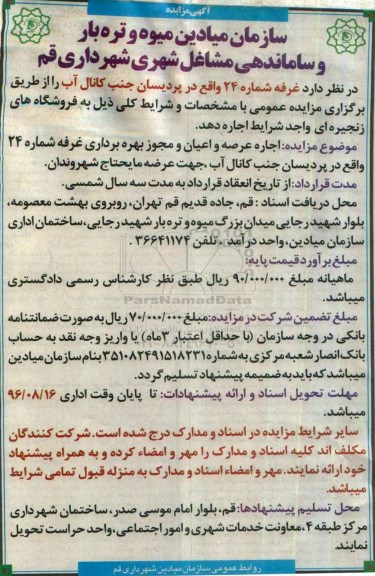 آگهی مزایده
سازمان میادین میوه و تره بار
و ساماندهی مشاغل شهری شهرداری قم
در نظر دارد غرفه شماره ۲۴ واقع در پردیسان جنب کانال آب را از طریق
برگزاری مزایده عمومی با مشخصات و شرایط کلی ذیل به فروشگاه های
زنجیره ای واجد شرایط اجاره دهد.
موضوع مزایده: اجاره عرصه و اعیان و مجوز بهره برداری غرفه شماره ۲۴
واقع در پردیسان جنب کانال آب ،جهت عرضه مایحتاج شهروندان.
مدت قرارداد: از تاریخ انعقاد قرارداد به مدت سه سال شمسی.
محل دریافت اسناد : قم، جاده قدیم قم تهران، روبروی بهشت معصومه،
بلوار شهید رجایی میدان بزرگ میوه و تره بار شهید رجایی، ساختمان اداری
سازمان میادین، واحد درآمد . تلفن ۳۶۶۴۱۱۷۴ .
مبلغ برآورد قیمت پایه:
ماهیانه مبلغ ۹۰/۰۰۰/۰۰۰ ریال طبق نظر کارشناس رسمی دادگستری
میباشد.
مبلغ تضمین شرکت در مزایده: مبلغ ۷۰/۰۰۰/۰۰۰ ریال به صورت ضمانتنامه
بانکی در وجه سازمان (با حداقل اعتبار ۳ماه) یا واریز وجه نقد به حساب
بانک انصار شعبه مرکزی به شماره ۳۵۱۰۸۲۴۹۱۵۱۸۲۳۱ بنام سازمان میادین
میباشد که باید به ضمیمه پیشنهاد تسلیم گردد.
مهلت تحویل اسناد و ارائه پیشنهادات: تا پایان وقت اداری ۹۶/۰۸/۱۶
میباشد.
سایر شرایط مزایده در اسناد و مدارک درج شده است. شرکت کنندگان
مکلف اند کلیه اسناد و مدارک را مهر و امضاء کرده و به همراه پیشنهاد
خود ارائه نمایند. مهر و امضاء اسناد و مدارک به منزله قبول تمامی شرایط
میباشد.
محل تسلیم پیشنهادها: قم، بلوار امام موسی صدر، ساختمان شهرداری
مرکز طبقه ۴، معاونت خدمات شهری و امور اجتماعی، واحد حراست تحویل
نمایند.
روابط عمومی سازمان میادین شهرداری قم
ParsNamadData